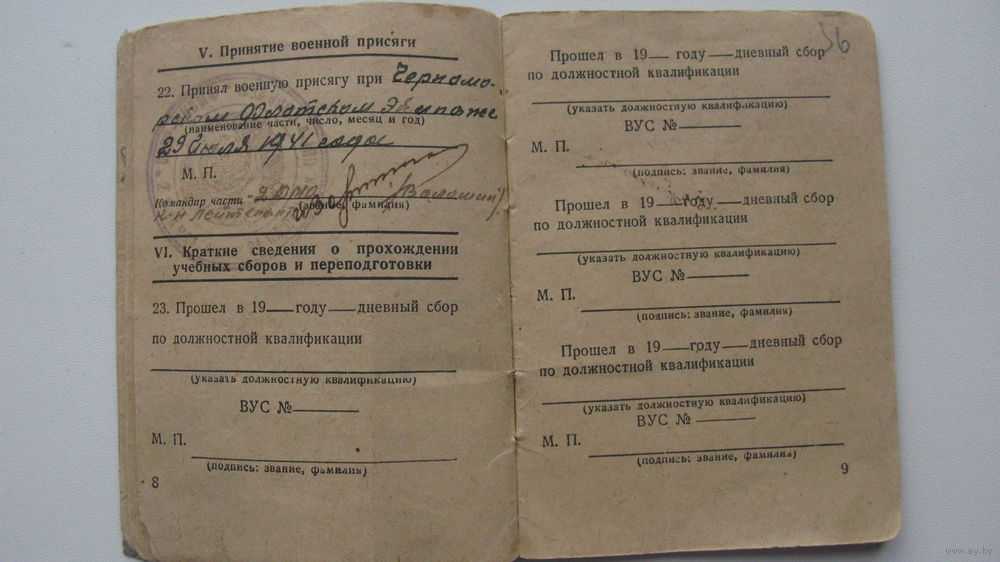 V. Принятие военной присяги
22. Принял военную присягу при Черномо-
рском Флотском Экипаже
(наименование части, число, месяц и год)
29 июля 1941 года
М. П.
Командир части
(звание, фамилия)
к-н лейтенант
VI. Краткие сведения о прохождении
учебных сборов и переподготовки
23. Прошел в 19 году дневный сбор
по должностной квалификации
(указать должностную квалификацию)
ВУС №
М. П.
(подпись: звание, фамилия)
8
56
Прошел в 19 году дневный сбор
по должностной квалификации
(указать должностную квалификацию)
ВУС №
М. П.
(подпись: звание, фамилия)
Прошел в 19 году дневный сбор
по должностной квалификации
(указать должностную квалификацию)
ВУС №
М. П.
(подпись: звание, фамилия)
Прошел в 19 году дневный сбор
по должностной квалификации
(указать должностную квалификацию)
ВУС №
М. П.
(подпись: звание, фамилия)
9
www.ay.by